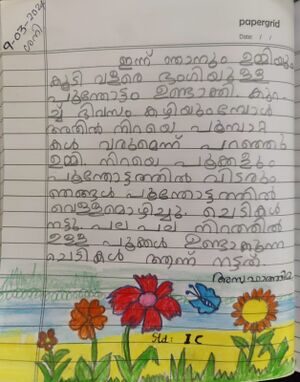 9-03-2024
ശനി
papergrid
Date: / /
ഇന്ന് ഞാനും ഉമ്മിയും
കൂടി വളരെ ഭംഗിയുള്ള
പൂന്തോട്ടം ഉണ്ടാക്കി. കുറ
ച്ച് ദിവസം കഴിയുമ്പോൾ
അതിൽ നിറയെ പൂമ്പാറ്റ
കൾ വരുമെന്ന് പറഞ്ഞു
ഉമ്മി. നിറയെ പൂക്കളും
പൂന്തോട്ടത്തിൽ വിടരും
ഞങ്ങൾ പൂന്തോട്ടത്തിൽ
വെള്ളമൊഴിച്ചു. ചെടികൾ
നട്ടു. പല പല നിറത്തിൽ
ഉള്ള പൂക്കൾ ഉണ്ടാകുന്ന
ചെടികൾ ആണ് നട്ടത്
Std: I C